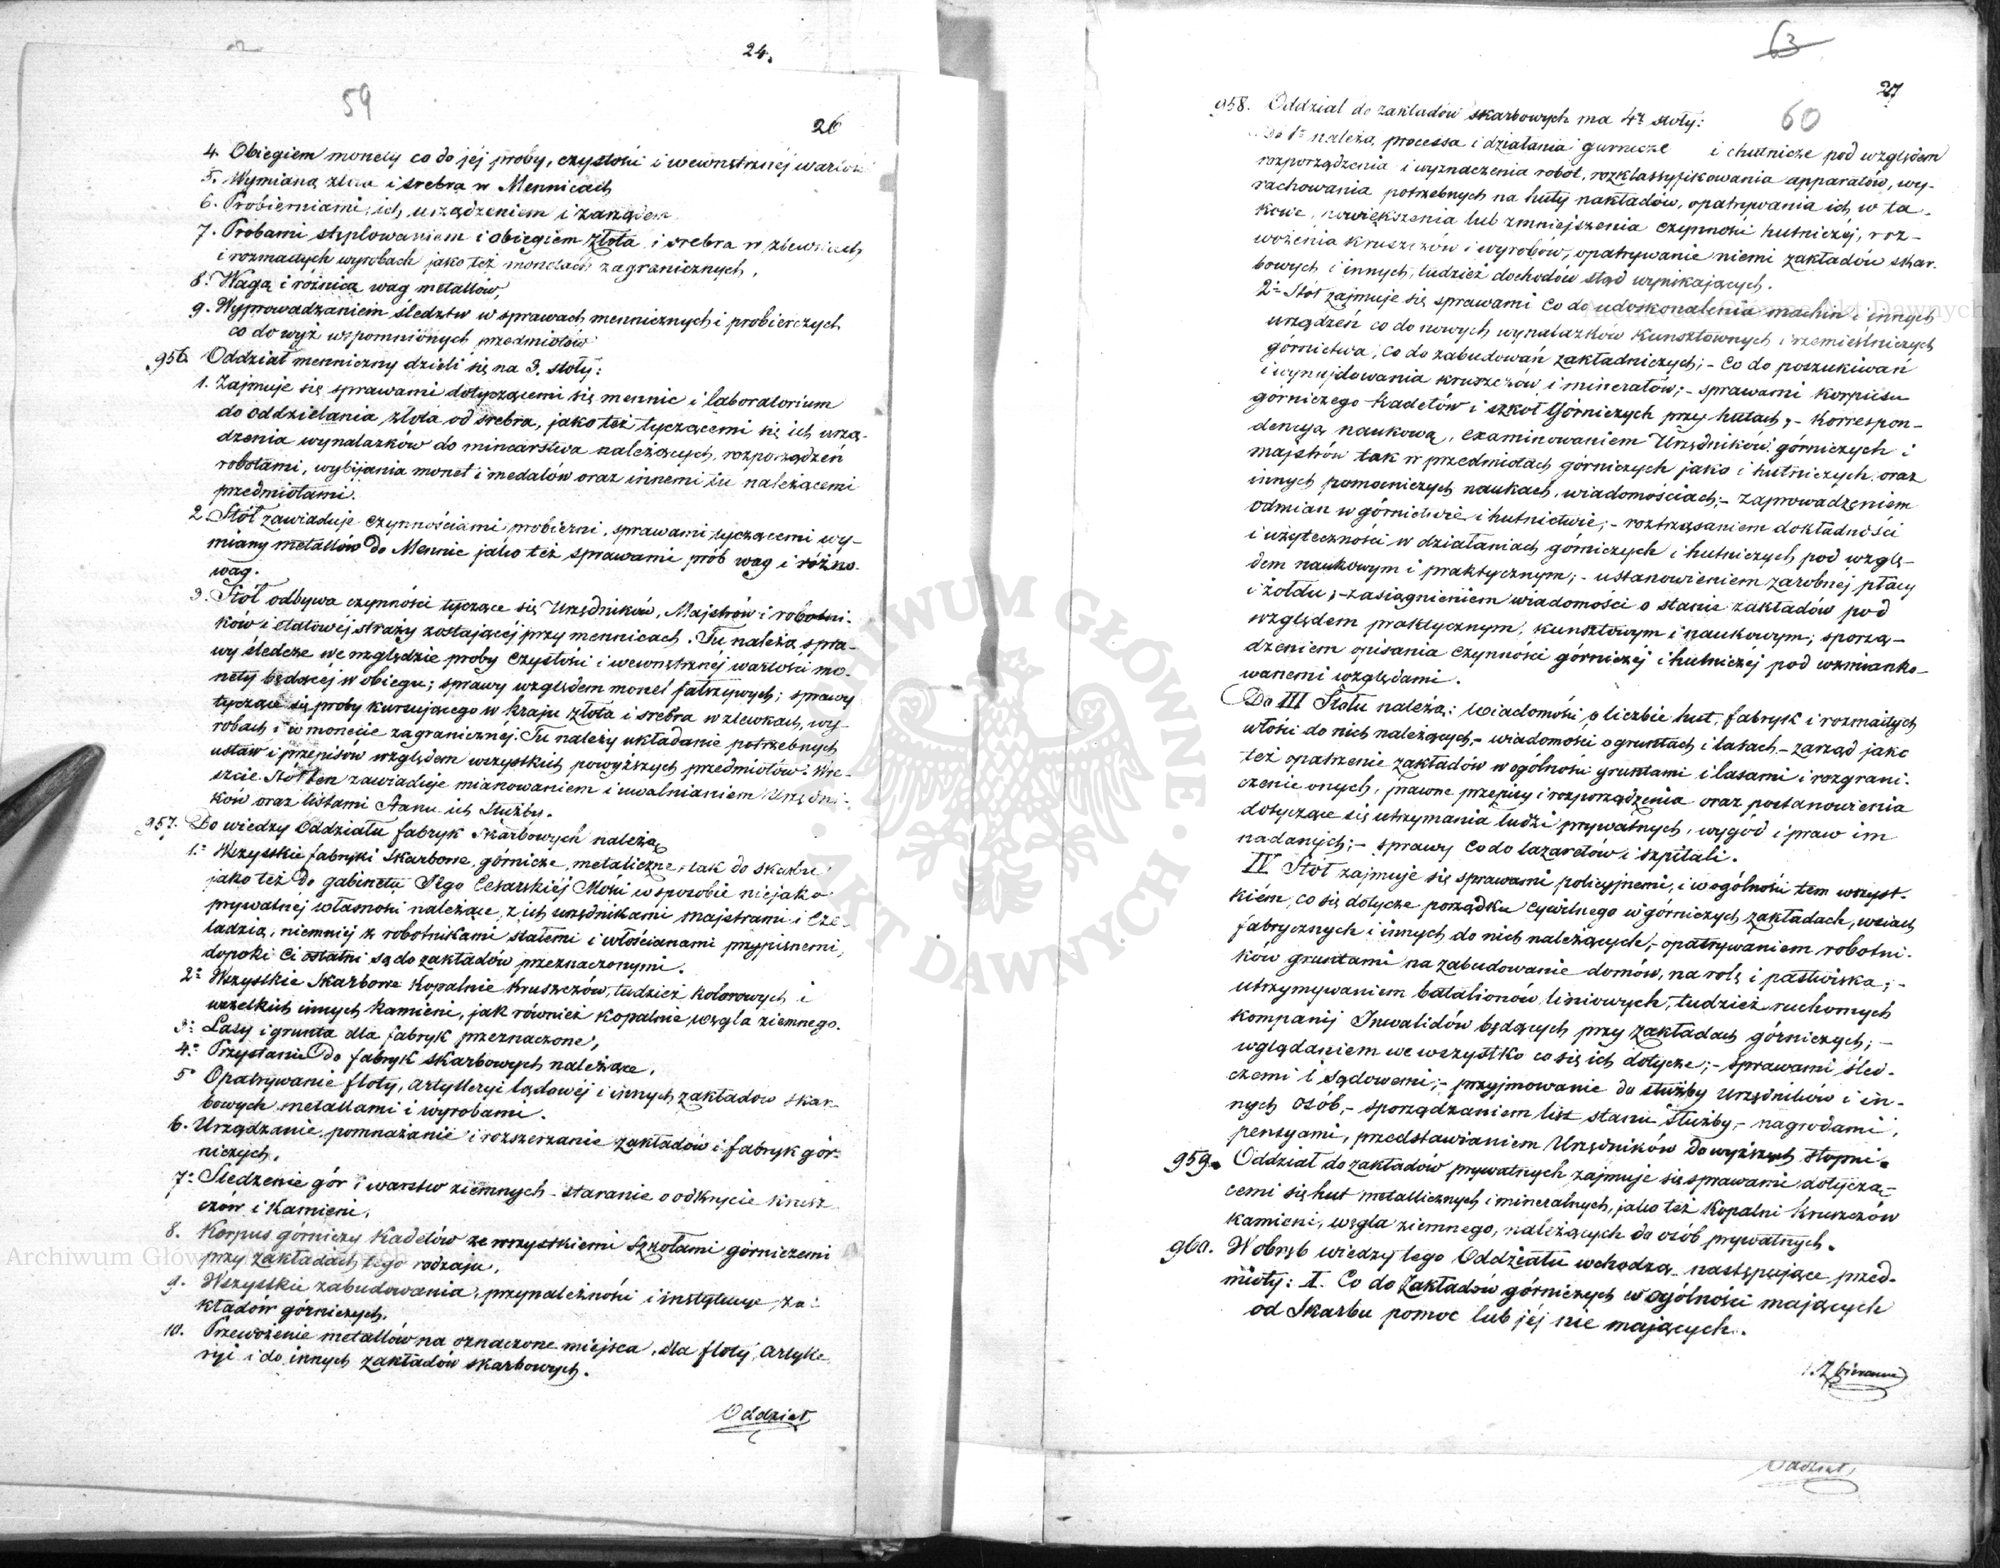 24.
59
26
4. Obiegiem monety co do jéj proby, czystości i wewnętrznéj wartości
5. Wymianą złota i srebra w Mennicach
6. Probierniami, ich urządzeniem i zarządem
7. Probami stęplowaniem i obiegiem złota i srebra w zlewkach
i rozmaitych wyrobach jako też monetach zagranicznych,
8. Wagą i różnicą wag metallów,
9. Wyprowadzaniem śledztw w sprawach mennicznych i probierczych
co do wyż wspomnionych przedmiotów
956. Oddział menniczny dzieli się na 3. stoły:
1. Zajmuje się sprawami dotyczącemi się mennic i laboratorium
do oddzielania złota od srebra, jako też tyczącemi się ich urzą-
dzenia wynalazków do mincarstwa należących, rozporządzeń
robotami, wybijania monet i medalów oraz innemi tu należącemi
przedmiotami.
2. Stół zawiaduje czynnościami probierni, sprawami tyczącemi wy-
miany metallów do Mennic jako też sprawami prób wag i różno-
wag.
3. Stół odbywa czynności tyczące się Urzędników, Majstrów i robotni-
ków i etatowéj straży zostającéj przy mennicach. Tu należą spra-
wy śledcze we względzie proby czystości i wewnętrznéj wartości mo-
nety będącéj w obiegu; sprawy względem monet fałszywych; sprawy
tyczące się proby kursującego w kraju złota i srebra w zlewkach, wy-
robach i w monecie zagranicznéj. Tu należy układanie potrzebnych
ustaw i przepisów względem wszystkich powyższych przedmiotów. Wre-
szcie Stół ten zawiaduje mianowaniem i uwalnianiem Urzędni-
ków oraz listami Stanu ich Służby.
957. Do wiedzy Oddziału fabryk Skarbowych należą
1.° Wszystkie fabryki Skarbowe, górnicze, metaliczne, tak do skarbu
jako też do gabinetu Jego Cesarskiéj Mości w sposobie niejako
prywatnéj własności należące, z ich urzędnikami majstrami i cze-
ladzią, niemniéj z robotnikami stałemi i włościanami przypisnemi,
dopóki ci ostatni są do zakładów przeznaczonymi.
2.° Wszystkie Skarbowe Kopalnie Kruszczów, tudzież kolorowych i
wszelkich innych kamieni, jak również kopalnie węgla ziemnego.
3.° Lasy i grunta dla fabryk przeznaczone,
4.° Przystanie do fabryk skarbowych należące,
5 Opatrywanie floty, artylleryi lądowéj i innych zakładów skar-
bowych metallami i wyrobami.
6. Urządzanie, pomnażanie i rozszerzanie zakładów i fabryk gór-
niczych,
7.° Śledzenie gór i warstw ziemnych - staranie o odkrycie krusz
czów i kamieni,
8. Korpus górniczy Kadetów ze wszystkiemi szkołami górniczemi
przy zakładach tego rodzaju,
9. Wszystkie zabudowania, przynależności i instytucye za-
kładów górniczych,
10. Przewożenie metallów na oznaczone miejsca, dla floty, artylle
ryi i do innych zakładów skarbowych.
Oddział
63
27
60
958. Oddział do zakładów skarbowych ma 4y stoły:
Do 1° należą processa i działania gurnicze i chutnicze pod względem
rozporządzenia i wyznaczenia robót, rozklassyfikowania apparatów, wy-
rachowania potrzebnych na huty nakładów, opatrywania ich w ta-
kowe, powiększenia lub zmniejszenia czynności hutniczéj, roz-
wożenia kruszczów i wyrobów, opatrywanie niemi zakładów skar-
bowych i innych, tudzież dochodów stąd wynikających.
2.° Stół zajmuje się sprawami co do udoskonalenia machin i innych
urządzeń co do nowych wynalazków kunsztownych i rzemieślniczych
górnictwa, co do zabudowań zakładniczych; - co do poszukiwań
i wynajdowania kruszczów i minerałów; - sprawami korpusu
górniczego kadetów i szkół Górniczych przy hutach, - korrespon-
dencyą naukową, examinowaniem Urzędników górniczych i
majstrów tak w przedmiotach górniczych jako i hutniczych oraz
innych pomocniczych naukach, wiadomościach, - zaprowadzeniem
odmian w górnictwie i hutnictwie; - roztrząsaniem dokładności
i użyteczności w działaniach górniczych i hutniczych pod wzglę-
dem naukowym i praktycznym; - ustanowieniem zarobnéj płacy
i żołdu; - zasiągnieniem wiadomości o stanie zakładów pod
względem praktycznym, kunsztowym i naukowym; sporzą-
dzeniem opisania czynności górniczéj i hutniczéj pod wzmianko-
wanemi względami.
Do III Stołu należą: wiadomości o liczbie hut, fabryk i rozmaitych
włości do nich należących, - wiadomości o gruntach i lasach - zarząd jako
też opatrzenie zakładów w ogólności gruntami i lasami i rozgrani-
czenie onych, prawne przepisy i rozporządzenia oraz postanowienia
dotyczące się utrzymania ludzi prywatnych, wygód i praw im
nadanych; - sprawy co do lazaretów i szpitali.
IV Stół zajmuje się sprawami policyjnemi, i w ogólności tem wszyst-
kiém, co się dotycze porządku cywilnego w górniczych zakładach, wsiach
fabrycznych i innych do nich należących, - opatrywaniem robotni-
ków gruntami na zabudowanie domów, na rolę i pastwiska; -
utrzymywaniem batalionów liniowych, tudzież ruchomych
kompanij Inwalidów będących przy zakładach górniczych; -
wglądaniem we wszystko co się ich dotycze; - sprawami śled-
czemi i sądowemi; - przyjmowanie do służby urzędników i in-
nych osób, - sporządzaniem list stanu służby, - nagrodami,
pensyami, przedstawianiem Urzędników do wyższych stopni.
959. Oddział do zakładów prywatnych zajmuje się sprawami dotyczą-
cemi się hut metallicznych i mineralnych, jako też Kopalni kruszczów
kamieni, węgla ziemnego, należących do osób prywatnych.
960. W obręb wiedzy tego Oddziału wchodzą następujące przed-
mioty: I. Co do Zakładów górniczych w ogólności mających
od Skarbu pomoc lub jéj nie mających.
1. Zbieranie
Oddział
Archiwum Główne Akt Dawnych
Archiwum Główne Akt Dawnych
ARCHIWUM GŁÓWNE · AKT DAWNYCH ·